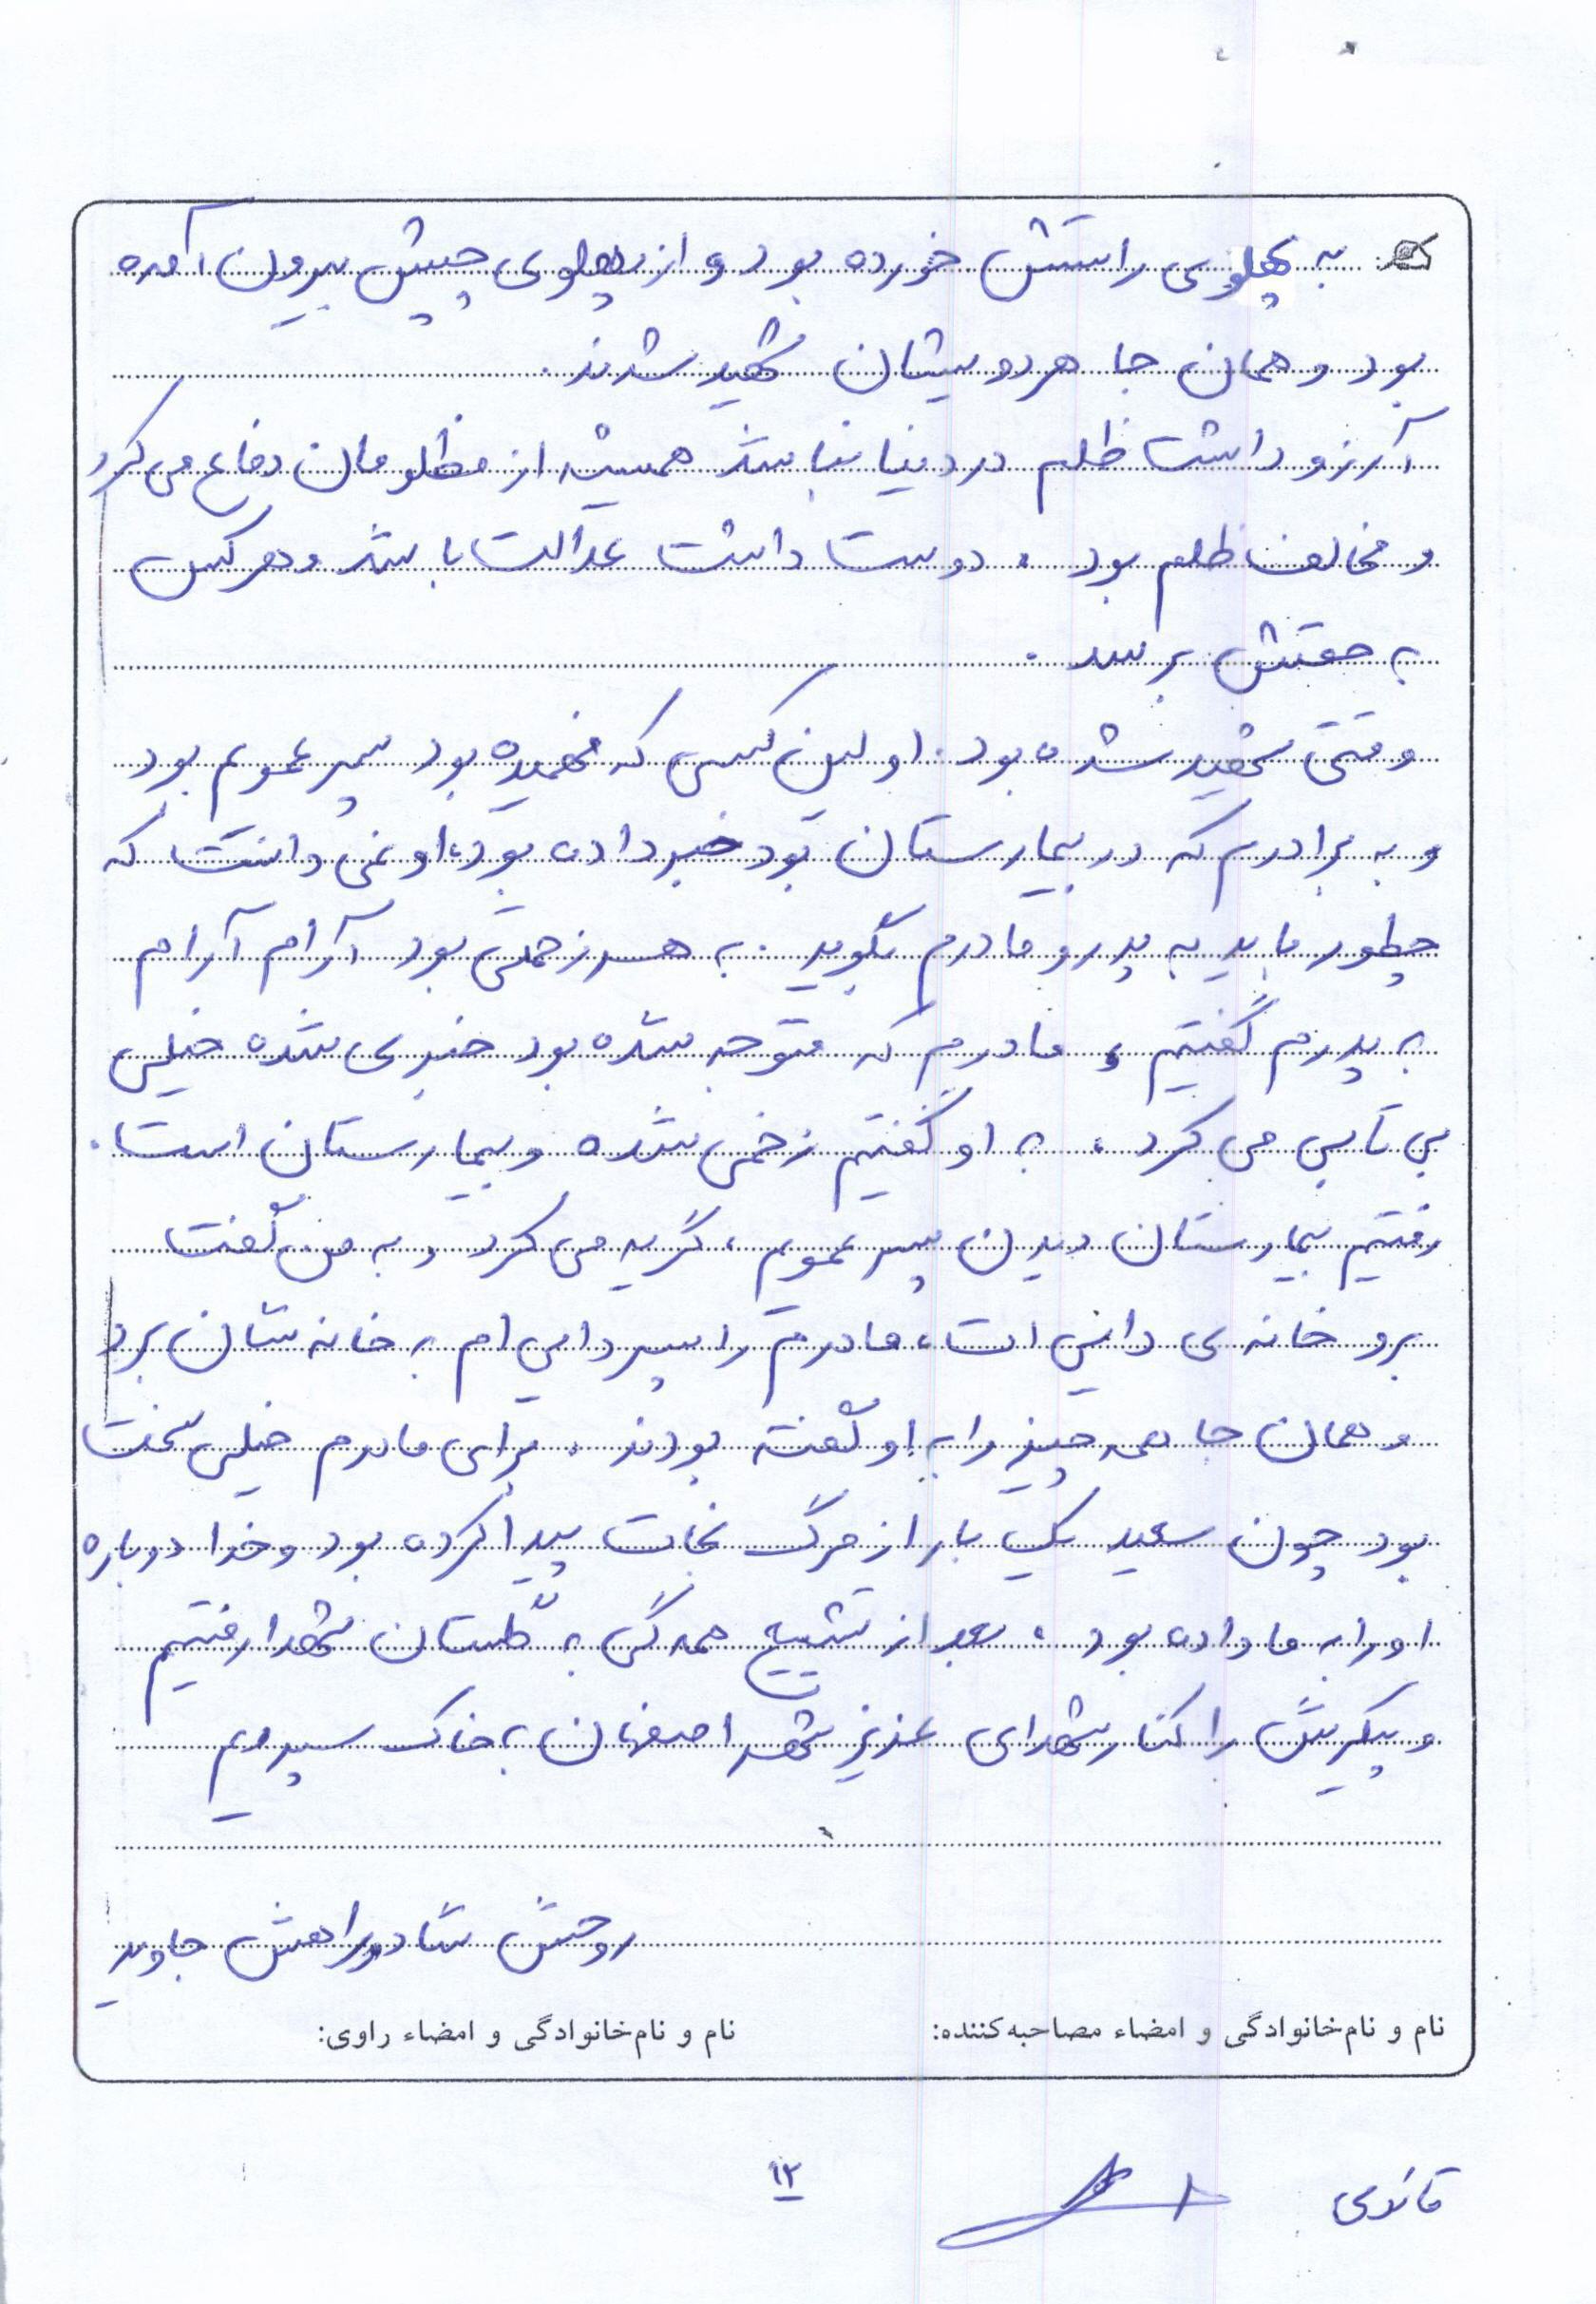 به پهلوی راستش خورده بود و از پهلوی چپش بیرون آمده
بود و همان جا هردویشان شهید شدند.
آرزو داشت ظلم در دنیا نباشد همیشه از مظلومان دفاع می‌کرد
و مخالف ظلم بود. دوست داشت عدالت باشد و هرکس
به حقش برسد.
وقتی شهید شده بود. اولین کسی که فهمیده بود پسر عمویم بود
و به برادرم که در بیمارستان بود خبر داده بود، او نمی‌دانست که
چطور باید به پدر و مادرم بگوید. به هر زحمتی بود آرام آرام
به پدرم گفتیم، مادرم که متوجه شده بود خبری شده خیلی
بی‌تابی می‌کرد، به او گفتیم زخمی شده و بیمارستان است.
رفتیم بیمارستان دیدن پسر عمویم، گریه می‌کرد و به من گفت
برو خانه‌ی دایی‌ات، مادرم را پسردایی‌ام به خانه‌شان برد
و همان جا همه چیز را به او گفته بودند. برای مادرم خیلی سخت
بود چون سعید یک بار از مرگ نجات پیدا کرده بود و خدا دوباره
او را به ما داده بود. بعد از تشییع همه‌گی به گلستان شهدا رفتیم
و پیکرش را کنار شهدای عزیز شهر اصفهان به خاک سپردیم
روحش شاد و راهش جاوید
نام و نام‌خانوادگی و امضاء مصاحبه‌کننده: نام و نام‌خانوادگی و امضاء راوی:
۱۲